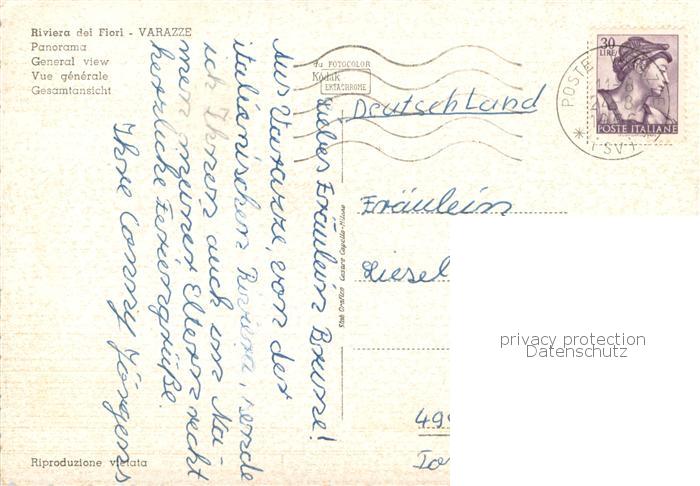 Riviera dei Fiori - VARAZZE
Panorama
General view
Vue générale
Gesamtansicht
4a FOTOCOLOR
Kodak
EKTACHROME
30
LIRE
POSTE ITALIANE
POSTE
(SV)
Deutschland
Fräulein
Liesel
49
privacy protection
Datenschutz
Liebes Fräulein Brune!
Aus Varazze, von der
italienischen Riviera, sende
ich Ihnen auch im Na-
men meiner Eltern recht
herzliche Feriengrüße.
Ihre Conny Jörgens
Stab. Grafico Cesare Capello - Milano
Riproduzione vietata